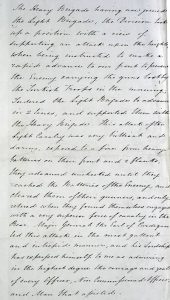 The Heavy Brigade having now joined
the Light Brigade, the Division took
up a position with a view of
supporting an attack upon the heights
when being instructed to make a
rapid advance to our front to prevent
the Enemy carrying the guns lost by
the Turkish Troops in the morning
I ordered the Light Brigade to advance
in 2 lines, and supported them with
the Heavy Brigade. This attack of the
Light Cavalry was very brilliant and
daring, exposed to a fire from heavy
batteries on their front and 2 flanks,
they advanced unchecked until they
reached the Batteries of the Enemy, and
cleared them of their gunners, and only
retired when they found themselves engaged
with a very superior force of cavalry in the
rear. Major General the Earl of Cardigan
led this attack in the most gallant
and intrepid manner, and his Lordship
has expressed himself to me as admiring
in the highest degree the courage and zeal
of every Officer, Non Commissioned Officer,
and Man that assisted.